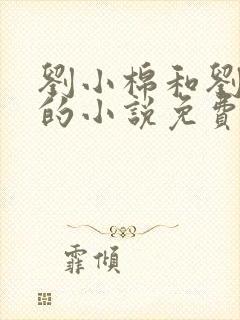 劉小棉和劉
的小說免費
霏傾